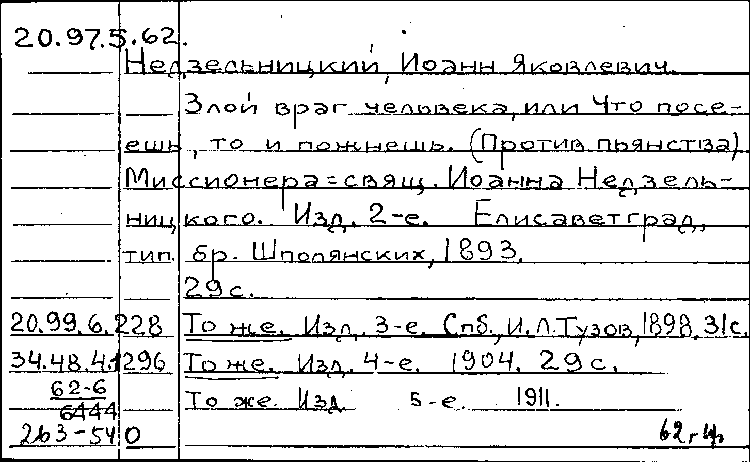 20.97.5.62.
Недзельницкий, Иоанн Яковлевич.
Злой враг человека, или Что посе-
ешь, то и пожнешь. (Против пьянства)
Миссионера=свящ. Иоанна Недзель-
ницкого. Изд. 2-е. Елисаветград,
тип. бр. Шполянских, 1893.
29 с.
20.99.6.228 То же. Изд. 3-е. Спб., И.Л.Тузов, 1898. 31с.
34.48.4.1296 То же. Изд. 4-е. 1904. 29 с.
62-6
6444 То же. Изд. 5-е. 1911.
263-540